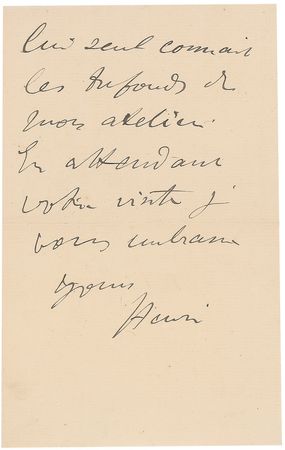 lui seul connait
les tréfonds de
mon atelier.
En attendant
votre visite j
vous embrasse
Henri